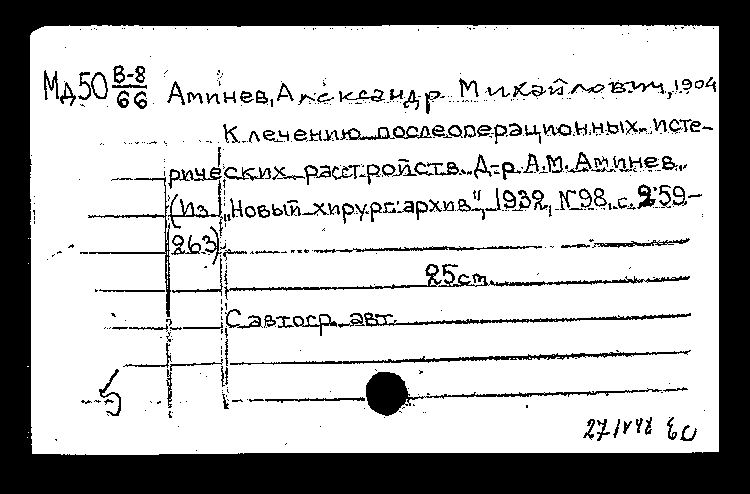 Мд50 В-8/66 Аминев, Александр Михайлович, 1904
К лечению послеоперационных исте-
рических расстройств. Д-р А.М. Аминев.
(Из „Новый хирург. архив", 1932, №98, с. 259-
263)
25 cm.
С автогр. авт.